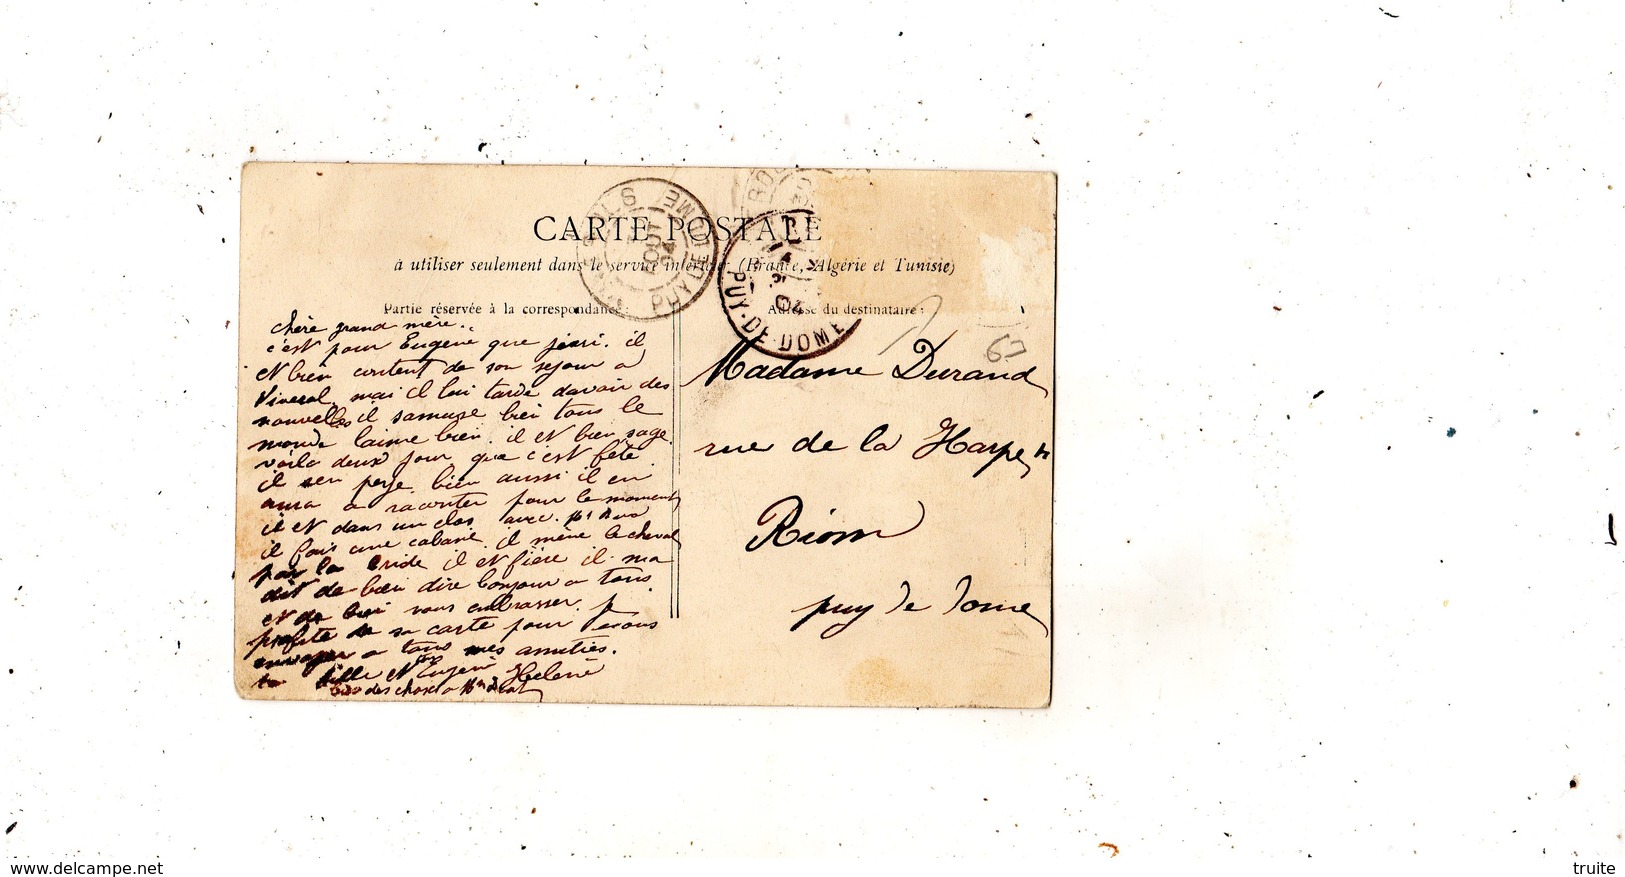 CARTE POSTALE
à utiliser seulement dans le service intérieur (France, Algérie et Tunisie)
Partie réservée à la correspondance :
Adresse du destinataire :
PUY DE DOME
AOUT
04
PUY-DE-DOME
04
67
chère grand mère..
c'est pour Eugène que j'écri. il
et bien content de son sejour a
mai il lui tarde davoir des
nouvelles il samuse bien tous le
monde laime bien. il et bien sage
voila deux jour que c'est fête
il sen paye bien aussi il en
aura a raconter pour le moment
il et dans un clos avec
il fais une cabane. il mène le cheval
par la bride il et fière il ma
dit de bien dire bonjour a tous
et de bien vous embrasser. je
profite de sa carte pour
envoyer a tous mes amitiés.
ta fille et Eugène Helène
des choses a
Madame Durand
rue de la Harpe
Riom
puy de dome
www.delcampe.net
truite